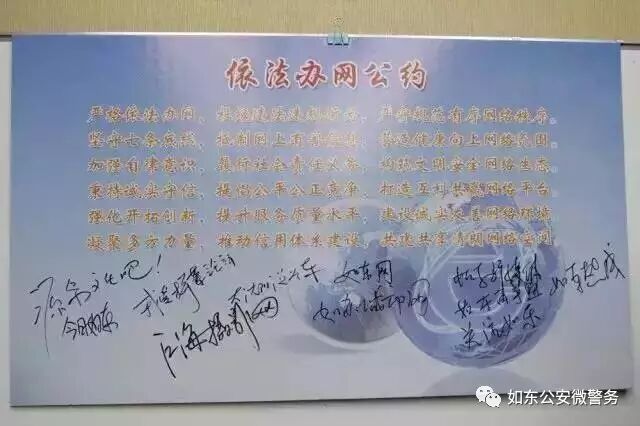 依法办网公约
严格依法办网，抵制违法违规行为，严守规范有序网络秩序。
坚守七条底线，抵制网上有害信息，营造健康向上网络氛围。
加强自律意识，履行社会责任义务，构筑文明安全网络生态。
秉持诚实守信，提倡公平公正竞争，打造互利共赢网络平台。
强化开拓创新，提升服务质量水平，建设诚实友善网络环境
凝聚多方力量，推动信用体系建设，共建共享清朗网络空间
吧！
今日如东
江海 网
如东网
如东热线
如东公安微警务